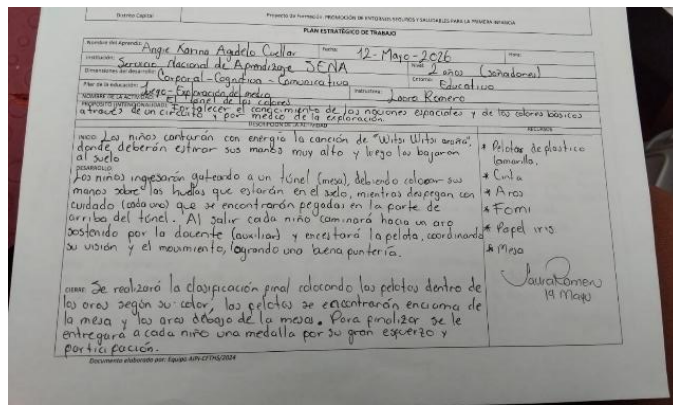 Distrito Capital
Proyecto de Formación: PROMOCIÓN DE ENTORNOS SEGUROS Y SALUDABLES PARA LA PRIMERA INFANCIA
PLAN ESTRATÉGICO DE TRABAJO
Nombre del Aprendiz: Angie Karina Agudelo Cuellar Fecha: 12-Mayo-2026 Hora:
Institución: Servicio Nacional de Aprendizaje SENA Nivel: 2 años (soñadores)
Dimensiones del desarrollo: Corporal-Cognitiva-Comunicativa Entorno: Educativo
Pilar de la educación: Juego-Exploración del medio Instructora: Laura Romero
NOMBRE DE LA ACTIVIDAD: El tunel de los colores
PROPÓSITO (INTENCIONALIDAD): Fortalecer el conocimiento de las nociones espaciales y de los colores básicos
a través de un circuito y por medio de la exploración.
DESCRIPCIÓN DE LA ACTIVIDAD RECURSOS
INICIO: Los niños cantarán con energía la canción de "Witsi Witsi araña",
donde deberán estirar sus manos muy alto y luego las bajaran
al suelo
DESARROLLO:
Los niños ingresarán gateando a un túnel (mesa), debiendo colocar sus
manos sobre las huellas que estarán en el suelo, mientras despegan con
cuidado (cada uno) que se encontrarán pegadas en la parte de
arriba del túnel. Al salir cada niño caminará hacia un aro
sostenido por la docente (auxiliar) y encestará la pelota, coordinando
su visión y el movimiento, logrando una buena puntería.
CIERRE: Se realizará la clasificación final colocando las pelotas dentro de
los aros según su color, las pelotas se encontrarán encima de
la mesa y los aros debajo de la mesa. Para finalizar se le
entregará a cada niño una medalla por su gran esfuerzo y
participación.
* Pelotas de plastico
(amarillo.
* Cinta
* Aros
* Fomi
* Papel iris
* Mesa
Laura Romero
19 Mayo
Documento elaborado por: Equipo AIPI-CFTHS/2024